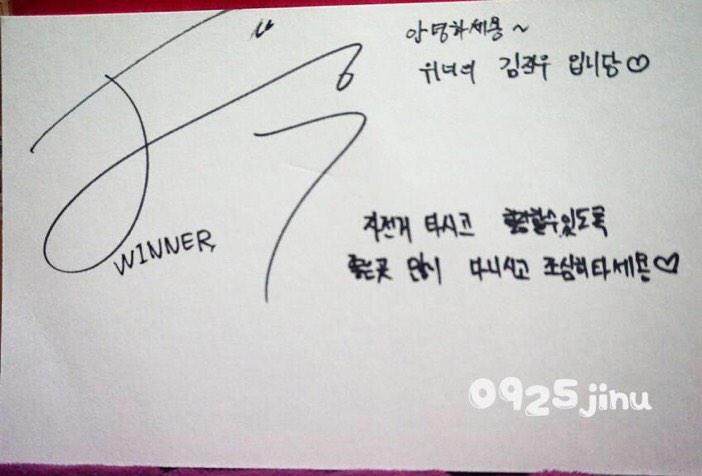 안녕하세용~
위너의 김진우 입니당♡
WINNER,
자전거 타시고
좋은곳 많이 다니시고 조심히타세용♡
0925jinu